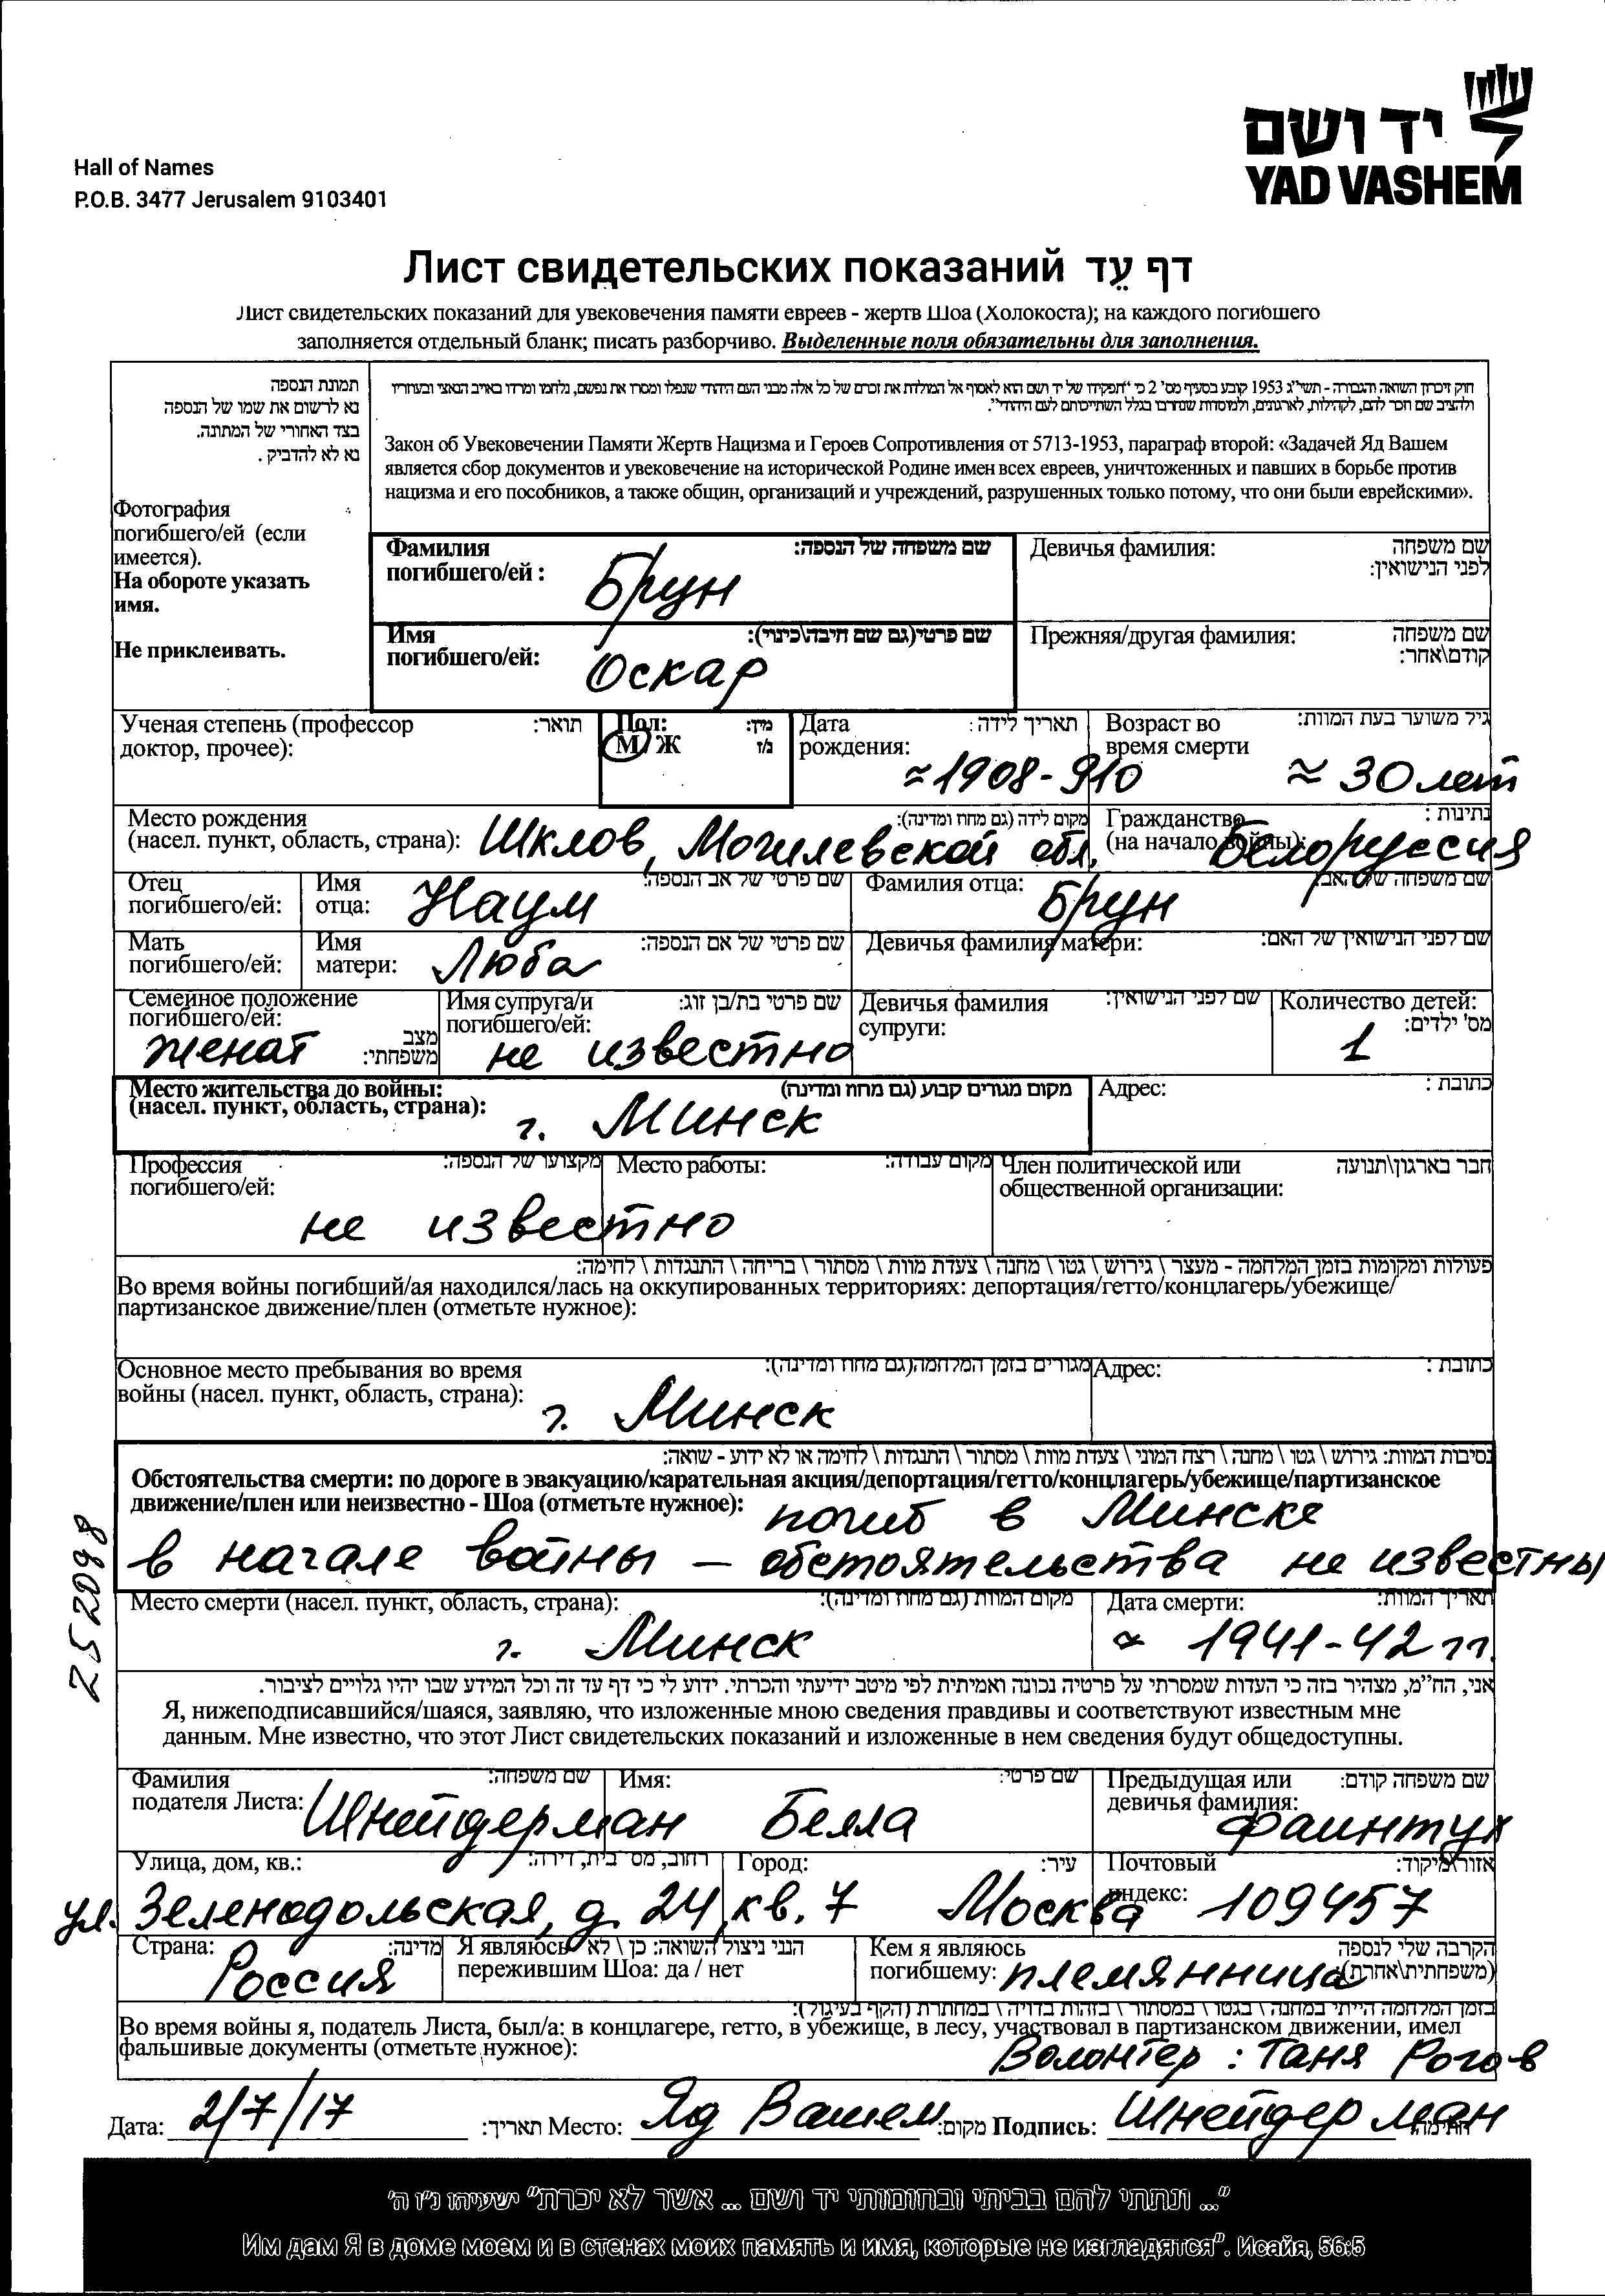 יד ושם
YAD VASHEM
Hall of Names
P.O.B. 3477 Jerusalem 9103401
Лист свидетельских показаний דף עֵד
Лист свидетельских показаний для увековечения памяти евреев - жертв Шоа (Холокоста); на каждого погибшего
заполняется отдельный бланк; писать разборчиво. Выделенные поля обязательны для заполнения.
תמונת הנספה
נא לרשום את שמו של הנספה
בצד האחורי של התמונה.
נא לא להדביק .
Фотография
погибшего/ей (если
имеется).
На обороте указать
имя.
Не приклеивать.
חוק זיכרון השואה והגבורה - תשי"ג 1953 קובע בסעיף מס' 2 כי "תפקידו של יד ושם הוא לאסוף אל המולדת את זכרם של כל אלה מבני העם היהודי שנפלו ומסרו את נפשם, נלחמו ומרדו באויב הנאצי ובעוזריו
ולהציב שם וזכר להם, לקהילות, לארגונים, ולמוסדות שנחרבו בגלל השתייכותם לעם היהודי".
Закон об Увековечении Памяти Жертв Нацизма и Героев Сопротивления от 5713-1953, параграф второй: «Задачей Яд Вашем
является сбор документов и увековечение на исторической Родине имен всех евреев, уничтоженных и павших в борьбе против
нацизма и его пособников, а также общин, организаций и учреждений, разрушенных только потому, что они были еврейскими».
Фамилия שם משפחה של הנספה:
погибшего/ей : Брун
Девичья фамилия: שם משפחה
לפני הנישואין:
Имя שם פרטי(גם שם חיבה\כינוי):
погибшего/ей: Оскар
Прежняя/другая фамилия: שם משפחה
קודם\אחר:
Ученая степень (профессор תואר:
доктор, прочее):
Пол: מין:
М/Ж ז/נ
Дата תאריך לידה:
рождения: ≈1908-910
Возраст во גיל משוער בעת המוות:
время смерти ≈ 30 лет
Место рождения מקום לידה (גם מחוז ומדינה):
(насел. пункт, область, страна): Шклов, Могилевской обл.
Гражданство נתינות :
(на начало войны): Белоруссия
Отец Имя שם פרטי של אב הנספה:
погибшего/ей: отца: Наум
Фамилия отца: שם משפחה של האב:
Брун
Мать Имя שם פרטי של אם הנספה:
погибшего/ей: матери: Люба
Девичья фамилия матери: שם לפני הנישואין של האם:
Семейное положение
погибшего/ей: מצב
женат משפחתי:
Имя супруга/и שם פרטי בת/בן זוג:
погибшего/ей:
не известно
Девичья фамилия שם לפני הנישואין:
супруги:
Количество детей:
מס' ילדים:
1
Место жительства до войны: מקום מגורים קבוע (גם מחוז ומדינה)
(насел. пункт, область, страна): г. Минск
Адрес: כתובת :
Профессия מקצועו של הנספה:
погибшего/ей:
Место работы: מקום עבודה:
не известно
Член политической или חבר בארגון\תנועה
общественной организации:
פעולות ומקומות בזמן המלחמה - מעצר \ גירוש \ גטו \ מחנה \ צעדת מוות \ מסתור \ בריחה \ התנגדות \ לחימה:
Во время войны погибший/ая находился/лась на оккупированных территориях: депортация/гетто/концлагерь/убежище/
партизанское движение/плен (отметьте нужное):
Основное место пребывания во время מגורים בזמן המלחמה(גם מחוז ומדינה):
войны (насел. пункт, область, страна): г. Минск
Адрес: כתובת :
נסיבות המוות: גירוש \ גטו \ מחנה \ רצח המוני \ צעדת מוות \ מסתור \ התנגדות \ לחימה או לא ידוע - שואה:
Обстоятельства смерти: по дороге в эвакуацию/карательная акция/депортация/гетто/концлагерь/убежище/партизанское
движение/плен или неизвестно - Шоа (отметьте нужное): погиб в Минске
в начале войны – обстоятельства не известны
252098
Место смерти (насел. пункт, область, страна): מקום המוות (גם מחוז ומדינה):
г. Минск
Дата смерти: תאריך המוות:
≈ 1941-42 гг.
אני, הח"מ, מצהיר בזה כי העדות שמסרתי על פרטיה נכונה ואמיתית לפי מיטב ידיעתי והכרתי. ידוע לי כי דף עד זה וכל המידע שבו יהיו גלויים לציבור.
Я, нижеподписавшийся/шаяся, заявляю, что изложенные мною сведения правдивы и соответствуют известным мне
данным. Мне известно, что этот Лист свидетельских показаний и изложенные в нем сведения будут общедоступны.
Фамилия שם משפחה:
подателя Листа: Шнейдерман
Имя: שם פרטי:
Белла
Предыдущая или שם משפחה קודם:
девичья фамилия: Фаинтух
Улица, дом, кв.: רחוב, מס' בית, דירה:
ул. Зеленодольская, д. 24, кв. 7
Город: עיר:
Москва
Почтовый אזור\מיקוד:
индекс: 109457
Страна: מדינה:
Россия
Я являюсь הנני ניצול השואה: כן \ לא
пережившим Шоа: да / нет
Кем я являюсь הקרבה שלי לנספה
погибшему: племянница (משפחתית\אחרת):
בזמן המלחמה הייתי במחנה \ בגטו \ במסתור \ בזהות בדויה \ במחתרת (הקף בעיגול):
Во время войны я, податель Листа, был/а: в концлагере, гетто, в убежище, в лесу, участвовал в партизанском движении, имел
фальшивые документы (отметьте нужное):
Волонтер : Таня Рогов
Дата: 2/7/17 תאריך: Место: Яд Вашем מקום: Подпись: Шнейдерман חתימה:
"... ונתתי להם בביתי ובחומותי יד ושם ... אשר לא יכרת" ישעיהו נ"ו ה'
Им дам Я в доме моем и в стенах моих память и имя, которые не изгладятся". Исайя, 56:5